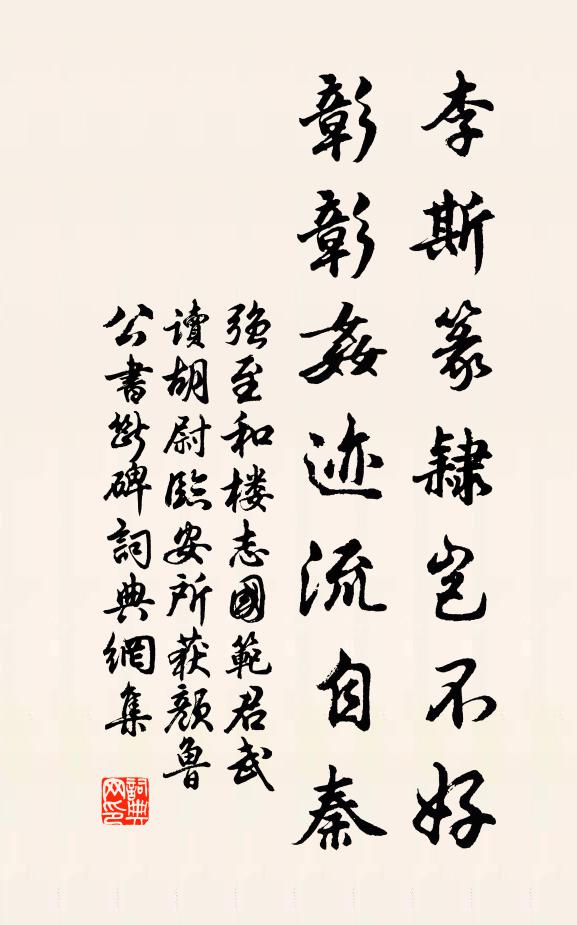 李斯篆隸岂不好
彰彰姦迹流自秦
强至和楼志國範君武
讀胡尉臨安所获顏魯
公書斷碑詞典網集
詞典
网印